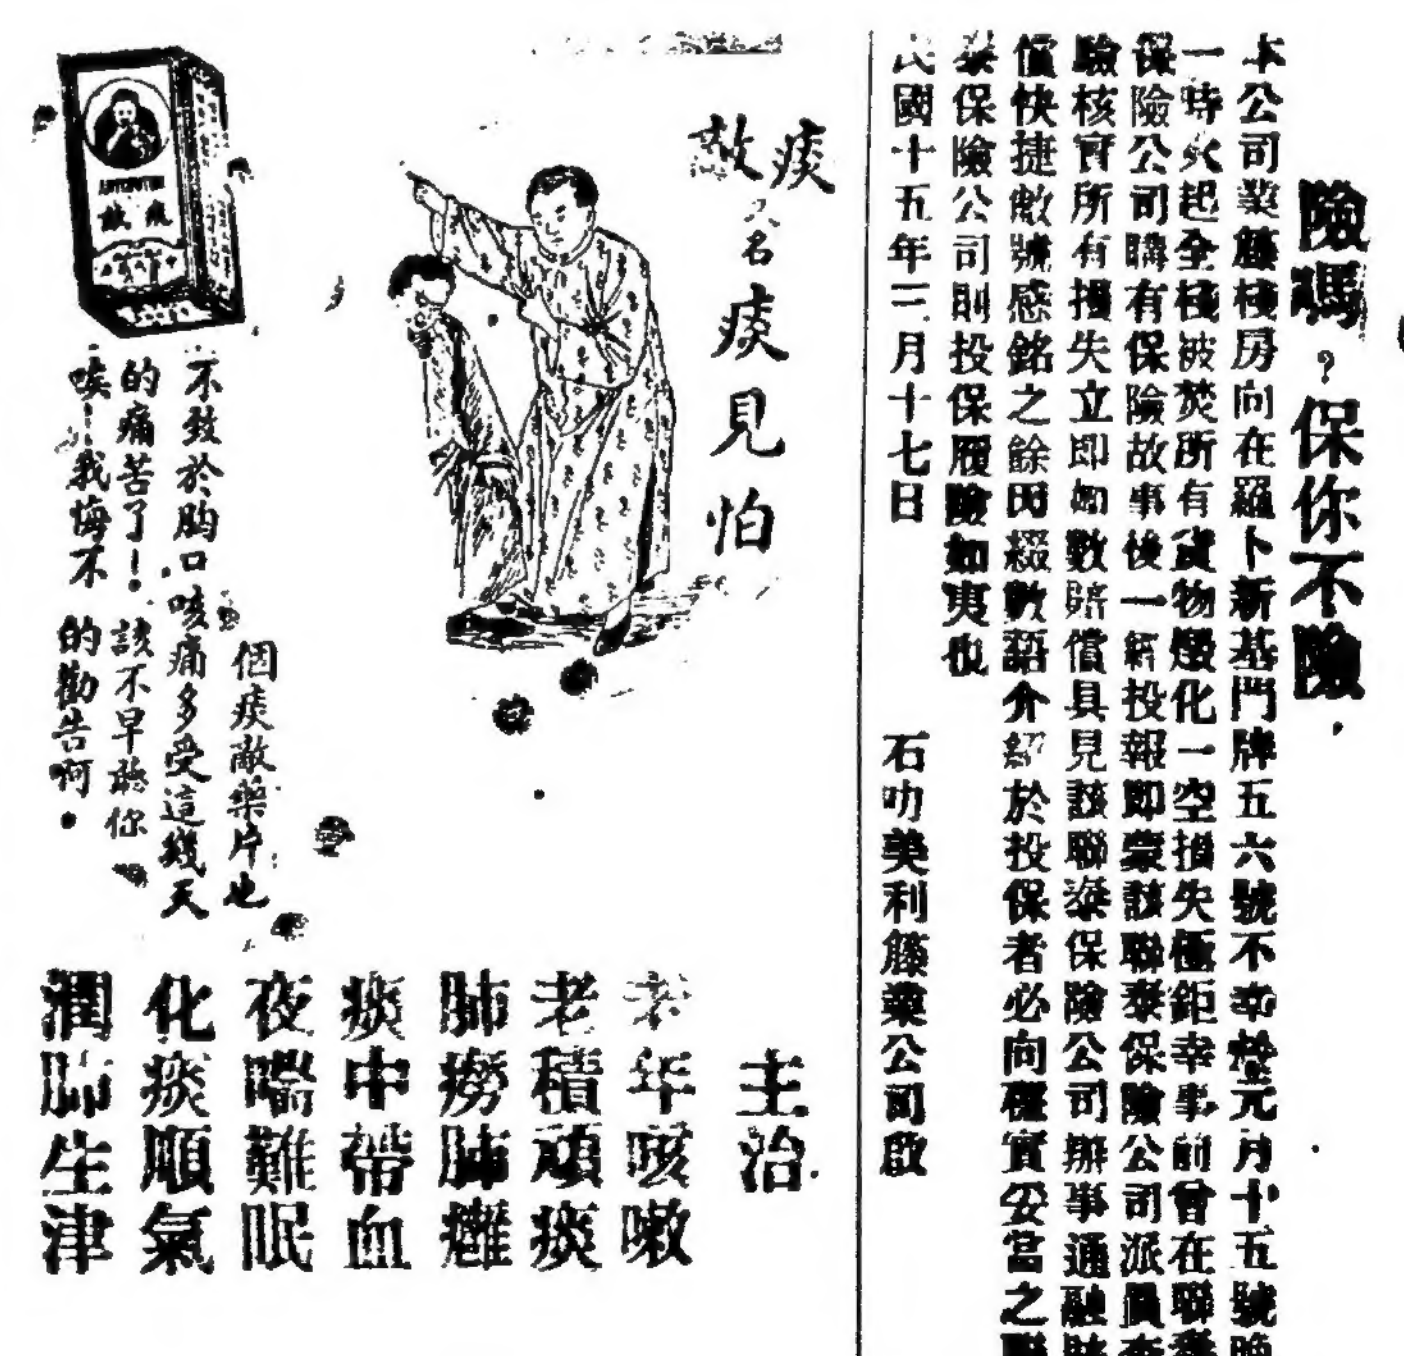 險嗎?保你不險,
本公司業藤棧房向在羅卜新基門牌五六號不幸於元月十五號晚
一時火起全棧被焚所有貨物燬化一空損失極鉅幸事前曾在聯泰
保險公司購有保險故事後一經投報即蒙該聯泰保險公司派員查
驗核實所有損失立即如數賠償具見該聯泰保險公司辦事通融賠
償快捷敝號感銘之餘因綴數語介紹於投保者必向穩實妥當之聯
泰保險公司則投保履險如夷也
民國十五年三月十七日
石叻美利藤業公司啟
痰敵
又名
痰見怕
痰敵
個痰敵藥片也
不致於胸口咳痛多受這幾天
的痛苦了!該不早聽你
唉!我悔不的勸告啊.
主治
老年咳嗽
老積頑痰
肺癆肺癰
痰中帶血
夜喘難眠
化痰順氣
潤肺生津